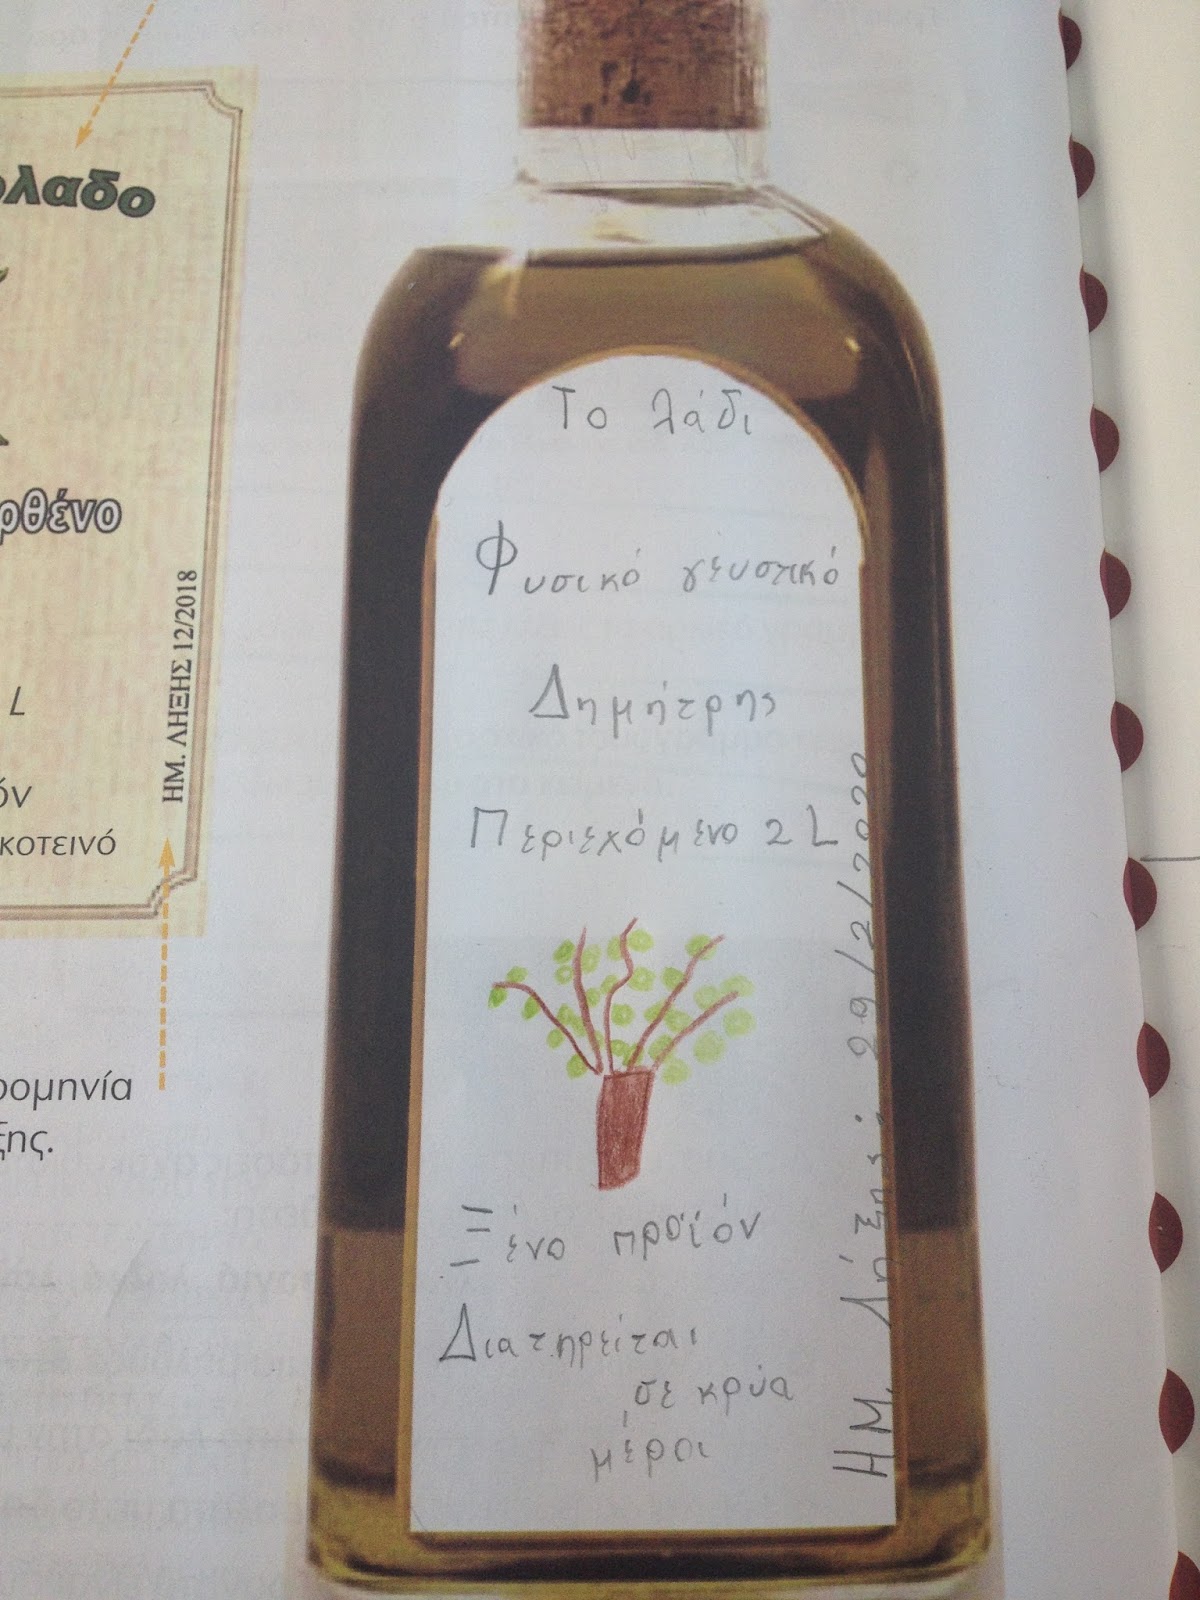 λαδο
ρθένο
L
όν
κοτεινό
ΗΜ. ΛΗΞΗΣ 12/2018
ρομηνία
ξης.
Το λάδι
Φυσικό γευστικό
Δημήτρης
Περιεχόμενο 2 L
Ξένο προϊόν
Διατηρείται
σε κρύα
μέροι
ΗΜ. Λήξης: 29/2/2020